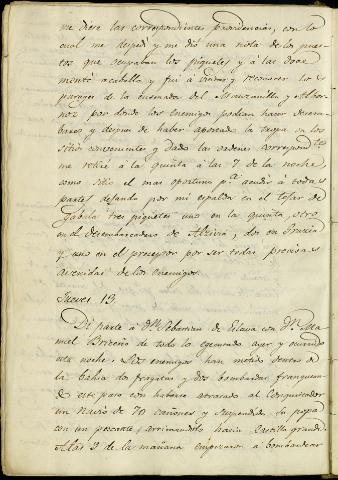 me diese las correspondientes providencias, con lo
cual me despedí y me dió una nota de los pues-
tos que ocupaban los piquetes y á las doce
monté a caballo y fuí á visitar y reconocer los
parages de la ensenada del Manzanillo y Albor-
noz por donde los enemigos podian hacer desem-
barco y despues de haber apostado la tropa en los
sitios convenientes y dado las ordenes correspondtes
me retiré á la quinta á las 7 de la noche,
como sitio el mas oportuno pa acudir á todas
partes dejando por mi espalda en el tejar de
Gabala tres piquetes uno en la quinta, otro
en el desembarcadero de Alzivia, dos en
y uno en el por ser todas precisas
avenidas de los enemigos.
Jueves 13,
Dí parte á Dn Sebastian de Eslava con Dn Ma-
nuel Brizeño de todo lo egecutado ayer y
esta noche. Los enemigos han metido dentro de
la bahia dos fragatas y dos bombardas franquean-
do este paso con haberse atracado al Conquistador
un navio de 70 cañones y suspendido su popa
con un pescante, arrimandolo hacia Castillo grande.
A las 9 de la mañana empezaron á bombardear